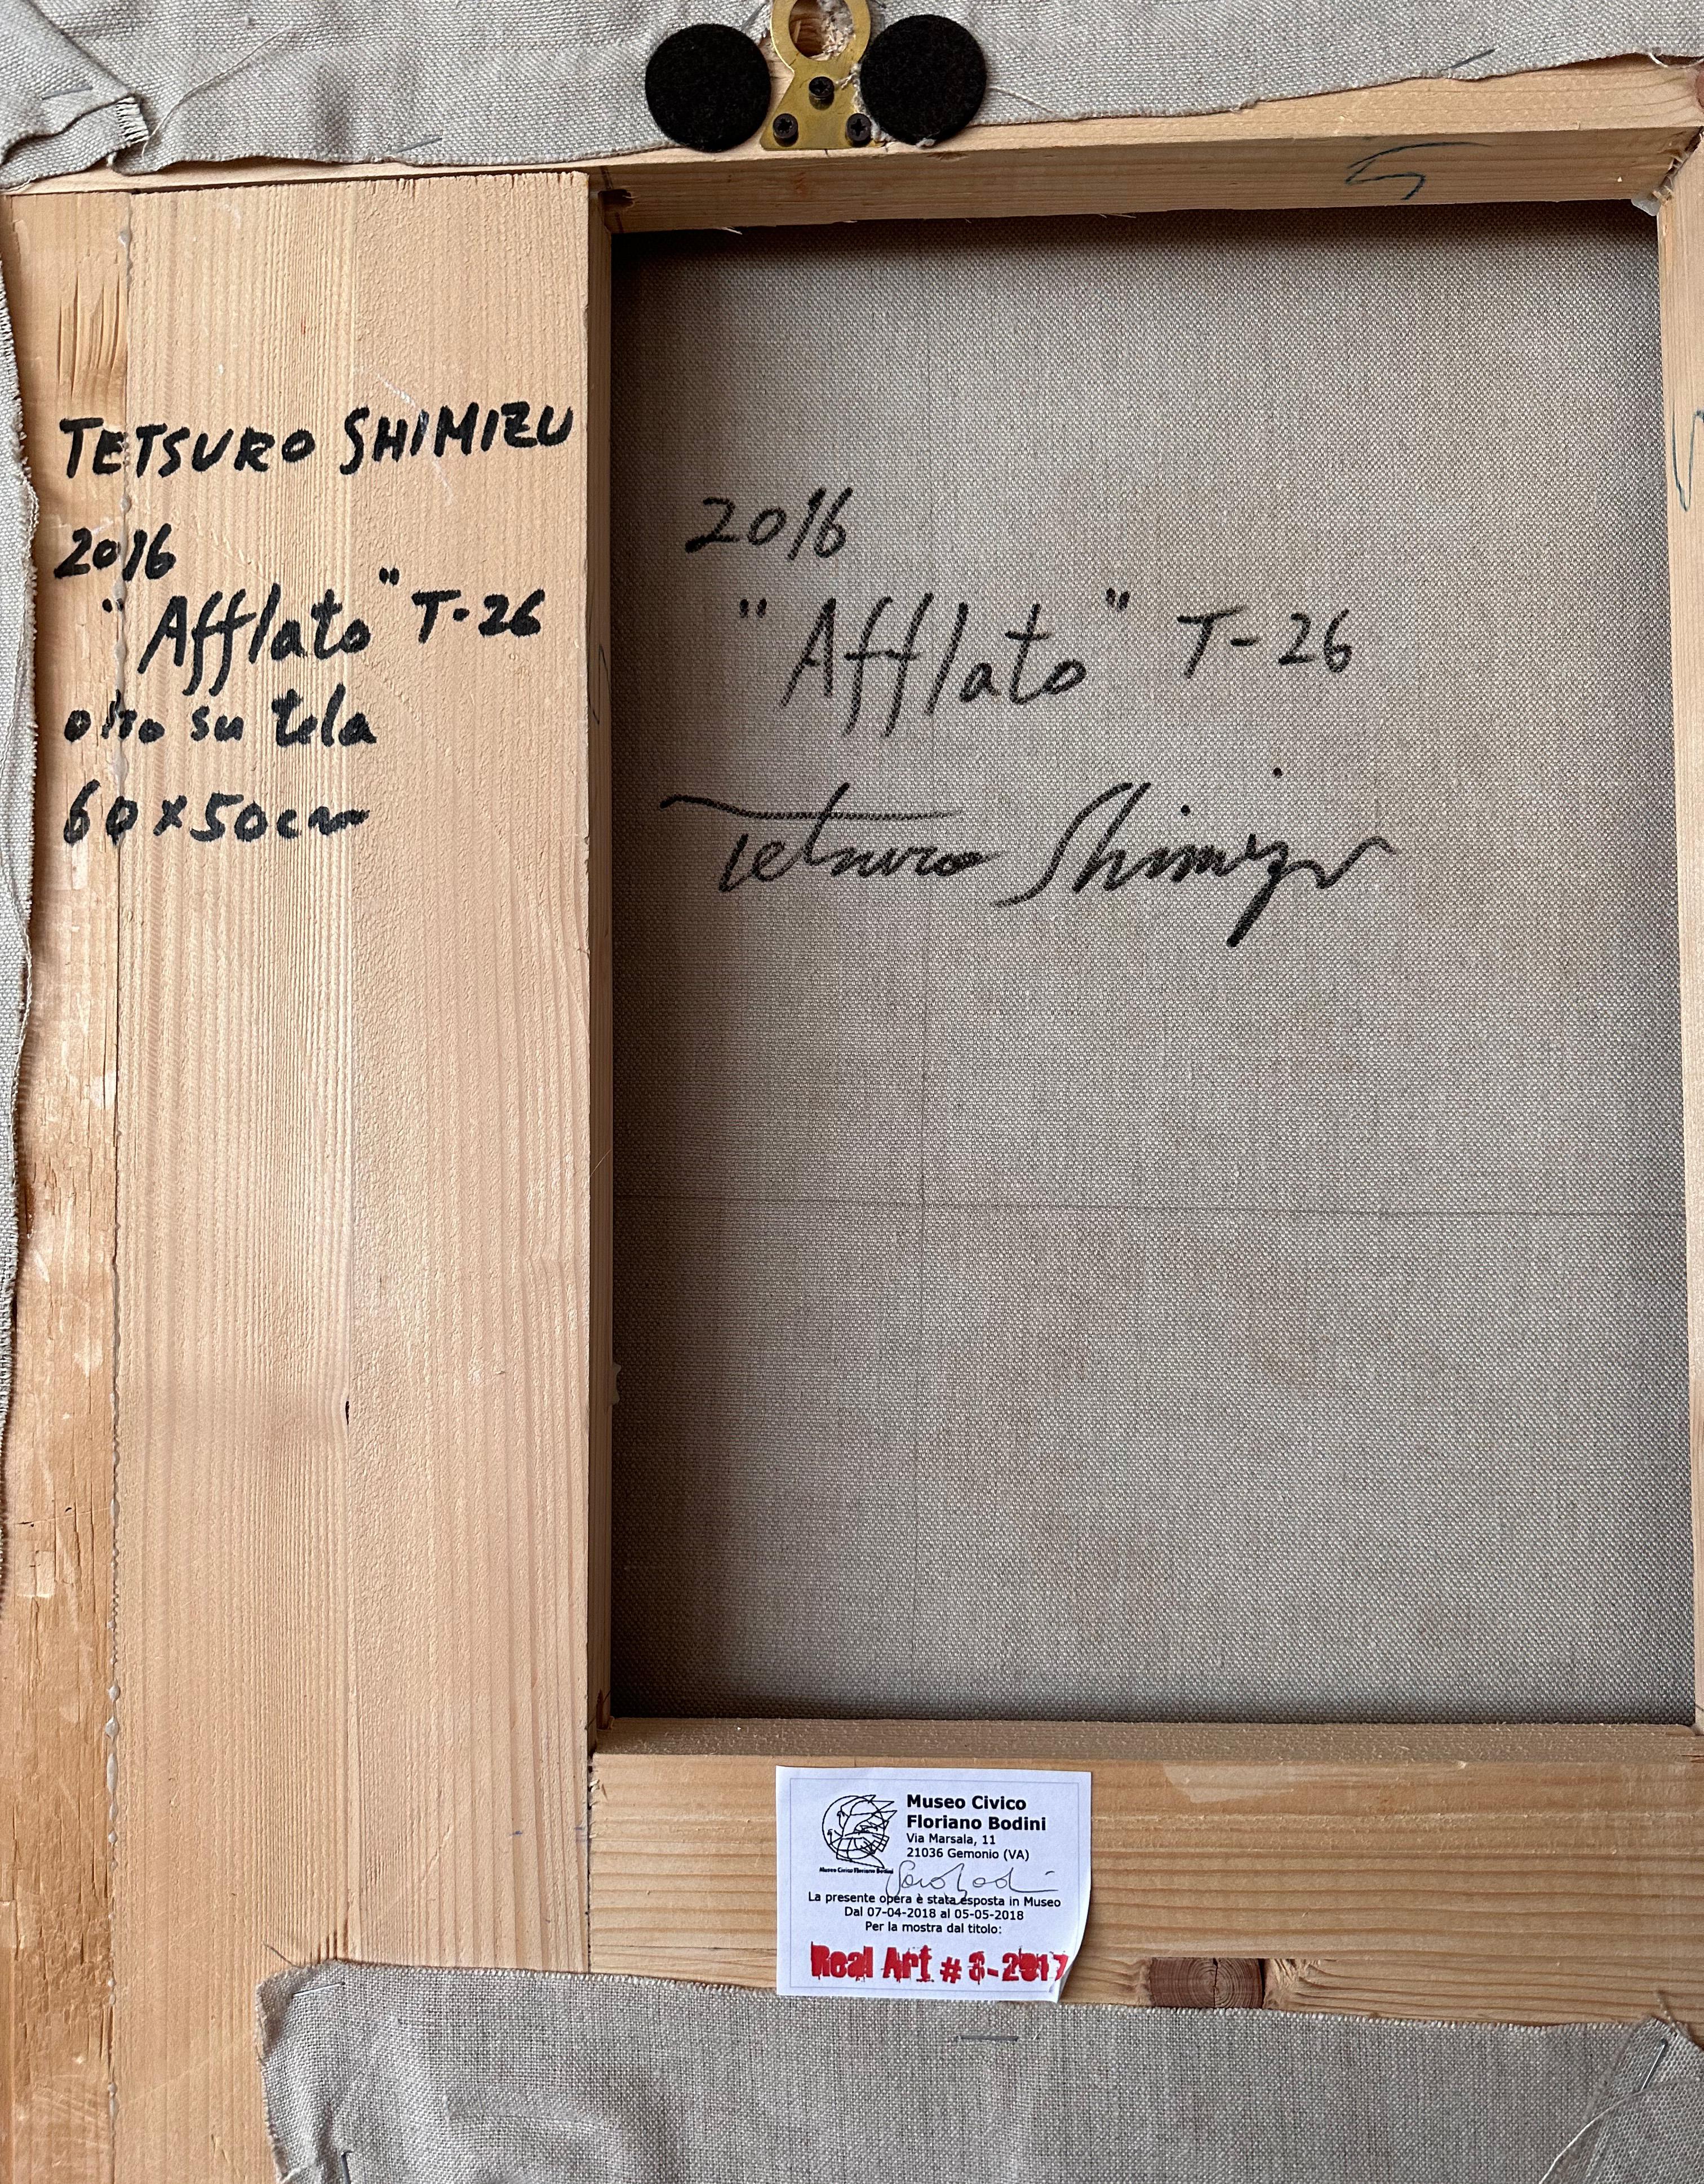 TETSURO SHIMIZU
2016
"Afflato" T-26
olio su tela
60x50cm
2016
"Afflato" T-26
Tetsuro Shimizu
5
Museo Civico
Floriano Bodini
Via Marsala, 11
21036 Gemonio (VA)
Museo Civico Floriano Bodini
La presente opera è stata esposta in Museo
Dal 07-04-2018 al 05-05-2018
Per la mostra dal titolo:
Real Art # 3-2017